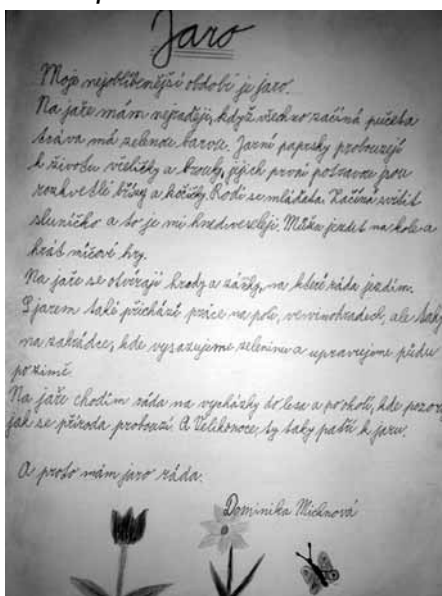 Jaro
Moje nejoblíbenější období je jaro.
Na jaře mám nejraději, když všechno začíná pučet a
tráva má zelenou barvu. Jarní paprsky probouzejí
k životu včeličky a brouky, jejich první potravou jsou
rozkvetlé břízy a kočičky. Rodí se mláďata. Začíná svítit
sluníčko a to je mi hned veseleji. Můžu jezdit na kole a
hrát míčové hry.
Na jaře se otvírají hrady a zámky, na které ráda jezdím.
S jarem také přichází práce na poli, ve vinohradech, ale tak
na zahrádce, kde vysazujeme zeleninu a upravujeme půdu
po zimě.
Na jaře chodím ráda na vycházky do lesa a po okolí, kde pozor
jak se příroda probouzí. A Velikonoce, ty taky patří k jaru.
A proto mám jaro ráda.
Dominika Michnová